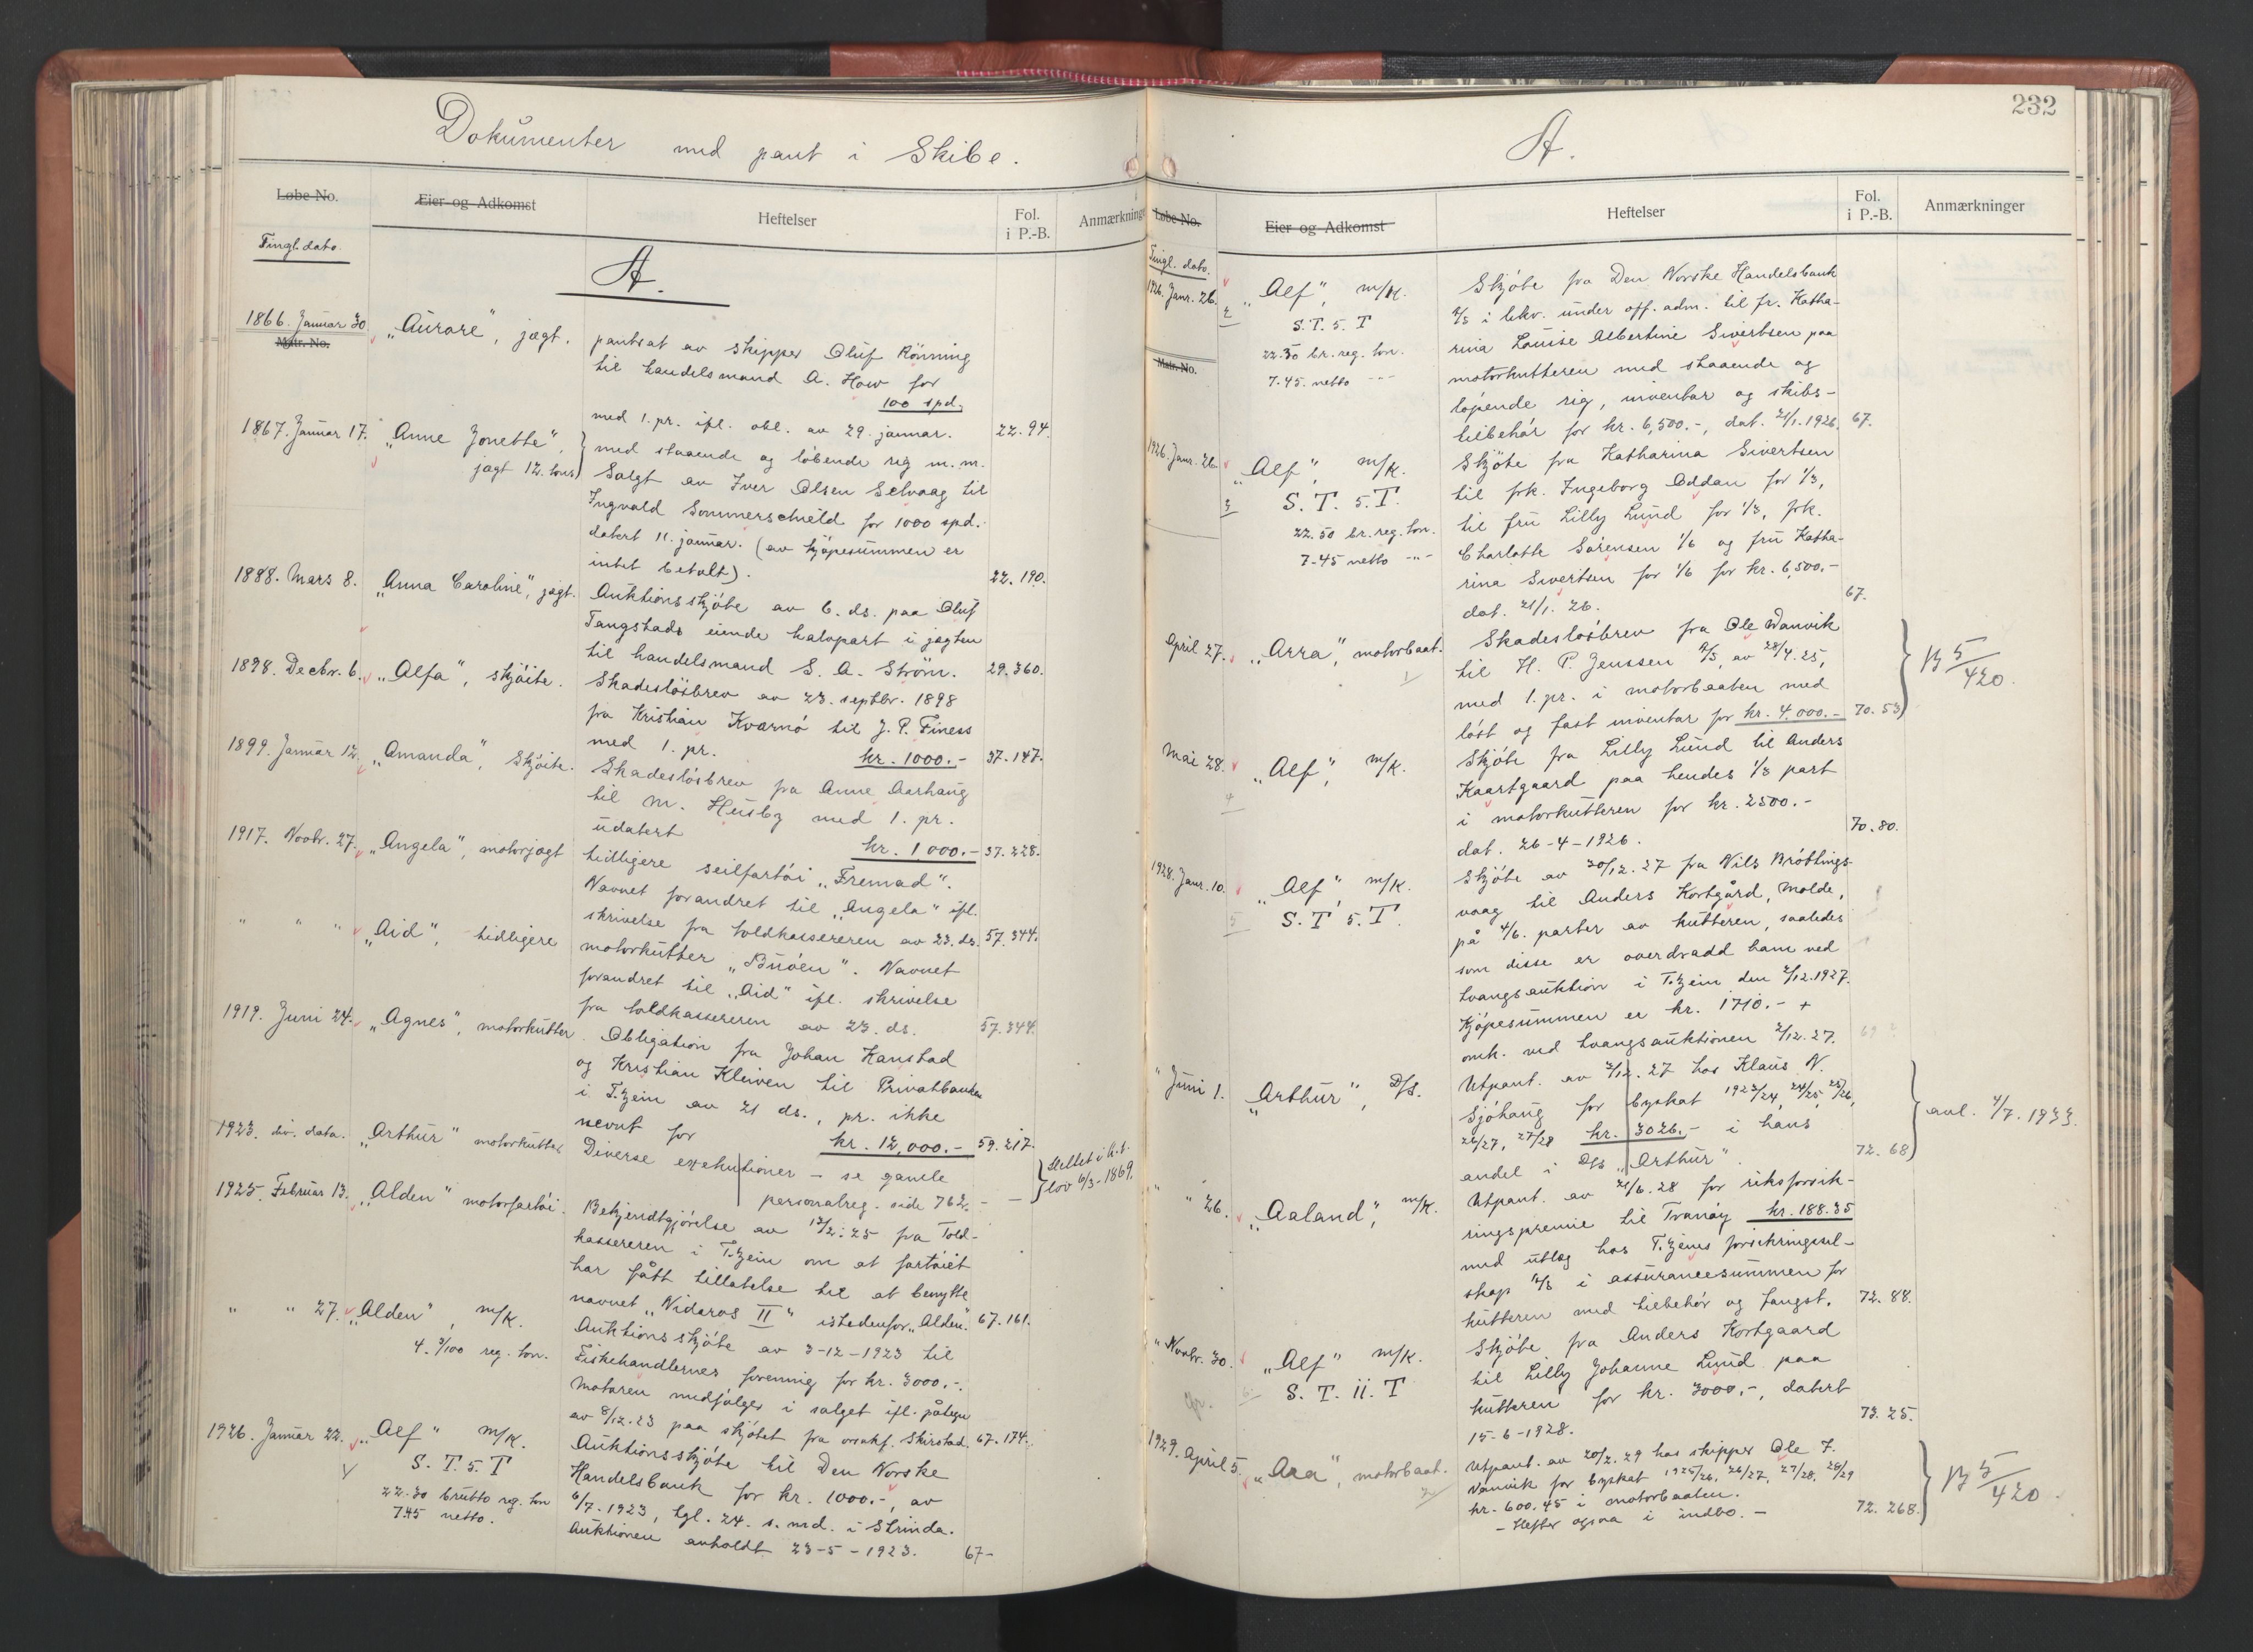 Dokumenter med pant i Skibe.
Løbe No.
Eier og Adkomst
Heftelser
Fol. i P.-B.
Anmærkninger
Tingl. dato.
A.
1866. Januar 30
Matr. No.
„Aurore", jagt.
pantsat av skipper Oluf Rönning
til handelsmand A. How for
100 spd.
med 1. pr. ifl. obl. av 29. januar.
22.94.
1867. Januar 17.
„Anne Jonette",
jagt 12. tons
med staaende og löbende rig m.m.
Salgt av Iver Olsen Selvaag til
Ingvald Sommerschield for 1000 spd.
datert 11. januar. (av kjöpesummen er
intet betalt).
22.190.
1888. Mars 8.
„Anna Caroline", jagt.
Auktionsskjöte av 6. ds. paa Oluf
Tangstads eiende halvpart i jagten
til handelsmand S. A. Ström.
29.360.
1898. Decbr. 6.
„Alfa", skjöite.
Skadeslösbrev av 23. septbr. 1898
fra Kristian Kvarnö til J. P. Finess
med 1. pr. kr. 1000.-
37.147.
1899. Januar 12.
„Amanda", Skjöite.
Skadeslösbrev fra Anne Aarhaug
til M. Husby med 1. pr.
udatert kr. 1000.-
37.228.
1917. Novbr. 27.
„Angela", motorjagt
tidligere seilfartöi „Fremad".
Navnet forandret til „Angela" ifl.
skrivelse fra toldkassereren av 23. ds.
57.344.
" " "
„Aid", tidligere
motorkutter „Buöen". Navnet
forandret til „Aid" ifl. skrivelse
fra toldkassereren av 23. ds.
57.344.
1919. Juni 24.
„Agnes", motorkutter.
Obligation fra Johan Kanstad
og Kristian Kleiven til Privatbanken
i T.hjem av 21 ds., pr. ikke
nevnt for kr. 12,000.-
59.217.
1923. div. data.
„Arthur" motorkutter
Diverse exekutioner - se gamle
personalreg. side 762. - -
Slettet i h.t.
lov 6/3-1869.
1925. Februar 13.
„Alden" motorfartöi.
Bekjendtgjörelse av 12/2.25 fra Told-
kassereren i T.hjem om at fartöiet
har fått tillatelse til at benytte
navnet „Nidaros II" istedenfor „Alden".
67.161.
" " 27.
„Alden", m/k.
4. 3/100 reg. ton.
Auktionsskjöte av 3-12-1923 til
Fiskehandlernes forening for kr. 3000.-.
Motoren medfölger i salget ifl. påtegn
av 8/12.23 paa skjötet fra orsakf. Skirstad.
67.174.
1926. Januar 22.
„Alf" m/k.
S. T. 5. T
22.30 brutto reg. ton
7.45 netto.
Auktionsskjöte til Den Norske
Handelsbank for kr. 1000.-, av
6/7.1923, tgl. 24. s. md. i Strinda.
Auktionen avholdt 23-5-1923.
67-
232
A.
Løbe No.
Eier og Adkomst
Heftelser
Fol. i P.-B.
Anmærkninger
Tingl. dato.
1926. Janr. 26.
2
Matr. No.
„Alf", m/k.
S.T. 5. T
22.50 br. reg. ton.
7.45. netto -"-
Skjöte fra Den Norske Handelsbank
A/S i likv. under off. adm. til fr. Katha-
rina Louise Albertine Sivertsen paa
motorkutteren med staaende og
löpende rig, inventar og skibs-
tilbehör for kr. 6,500.-, dat. 21/1.1926.
67.
1926. Janr. 26.
3
„Alf", m/k.
S. T. 5. T.
22.50 br. reg. ton.
7.45 netto -"-
Skjöte fra Katharina Sivertsen
til frk. Ingeborg Oddan for 1/3,
til fru Lilly Lund for 1/3, frk.
Charlotte Sörensen 1/6 og fru Katha-
rina Sivertsen for 1/6 for kr. 6,500.-
dat. 21/1.26.
67.
April 27.
„Arra", motorbaat.
1
Skadeslösbrev fra Ole Danvik
til H. P. Jenssen A/S, av 28/4.25,
med 1. pr. i motorbaaten med
löst og fast inventar for kr. 4.000.-
70.53
5/420.
Mai 28.
4
„Alf", m/k.
Skjöte fra Lilly Lund til Anders
Kaartgaard paa hendes 1/3 part
i motorkutteren for kr. 2500.-
dat. 26-4-1926.
70.80.
1928. Janr. 10.
5
„Alf", m/k.
S. T. 5. T.
Skjöte av 20/12.27 fra Nils Bröttings-
vaag til Anders Kortgård, Molde,
på 4/6. parter av kutteren, saaledes
som disse er overdradd ham ved
tvangsauktion i T.hjem den 2/12.1927.
Kjöpesummen er kr. 1710.- +
omk. ved tvangsauktionen 2/12.27.
69
" Juni 1.
„Arthur", D/S.
Utpant. av 2/12.27 hos Klaus N.
Sjöhaug for byskat 1923/24, 24/25, 25/26,
26/27, 27/28 kr. 3026.- i hans
andel i D/S „Arthur".
72.68
avl. 4/7.1933.
" " 26.
„Aaland", m/k.
Utpant. av 21/6.28 for riksforsik-
ringspremie til Tranöy kr. 188.35
med utlæg hos T.hjems forsikringssel-
skap A/S i assurancesummen for
kutteren med tilbehör og fangst.
72.88.
" Novbr. 30.
6
„Alf" m/k.
S. T. 11. T
Skjöte fra Anders Kortgaard
til Lilly Johanne Lund paa
kutteren for kr. 3000.-, datert
15-6-1928.
73.25.
1929. April 5.
„Ara", motorbaat.
2
Utpant. av 20/2.29 hos skipper Ole F.
Vanvik for byskat 1925/26, 26/27, 27/28, 28/29
kr. 600.45 i motorbaaten.
- Hefter ogsaa i indbo. -
72.268.
5/420.